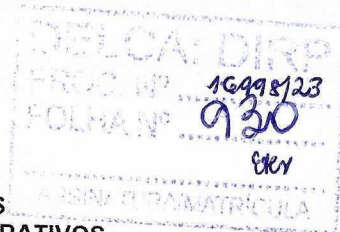 DELCA: DIRP
PROC. Nº 16998/23
FOLHA Nº 930
ASSINATURA/MATRÍCULA
S
RATIVOS